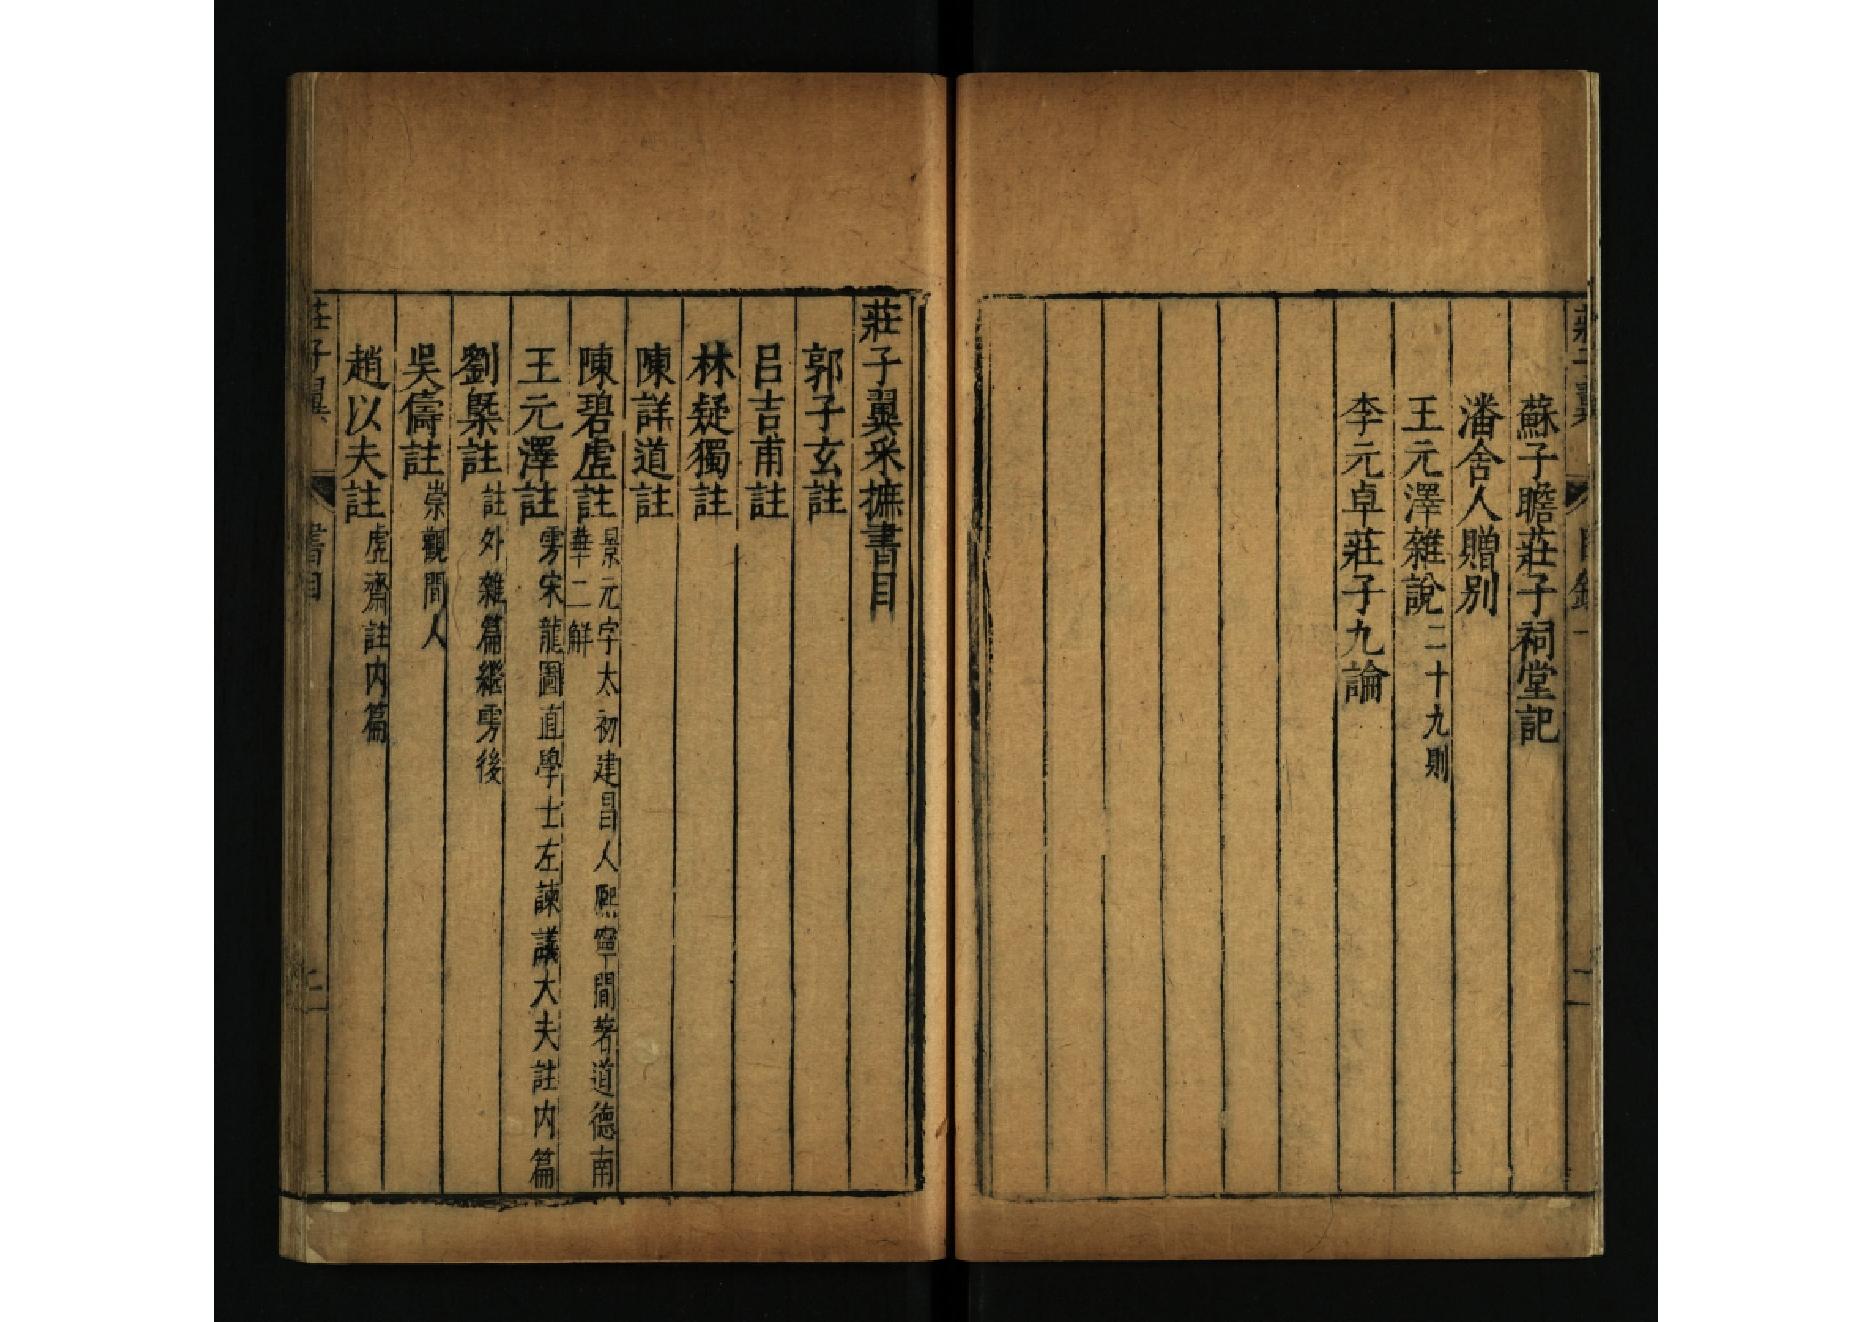 蘇子瞻莊子祠堂記
潘舍人贈別
王元澤雜說二十九則
李元卓莊子九論
莊子翼采摭書目
郭子玄註
呂吉甫註
林疑獨註
陳詳道註
陳碧虛註景元字太初建昌人熙寧間著道德南華二解
王元澤註雱宋龍圖直學士左諫議大夫註内篇
劉槩註註外雜篇繼雱後
吳儔註崇觀間人
趙以夫註虛齋註内篇
莊子翼 書目